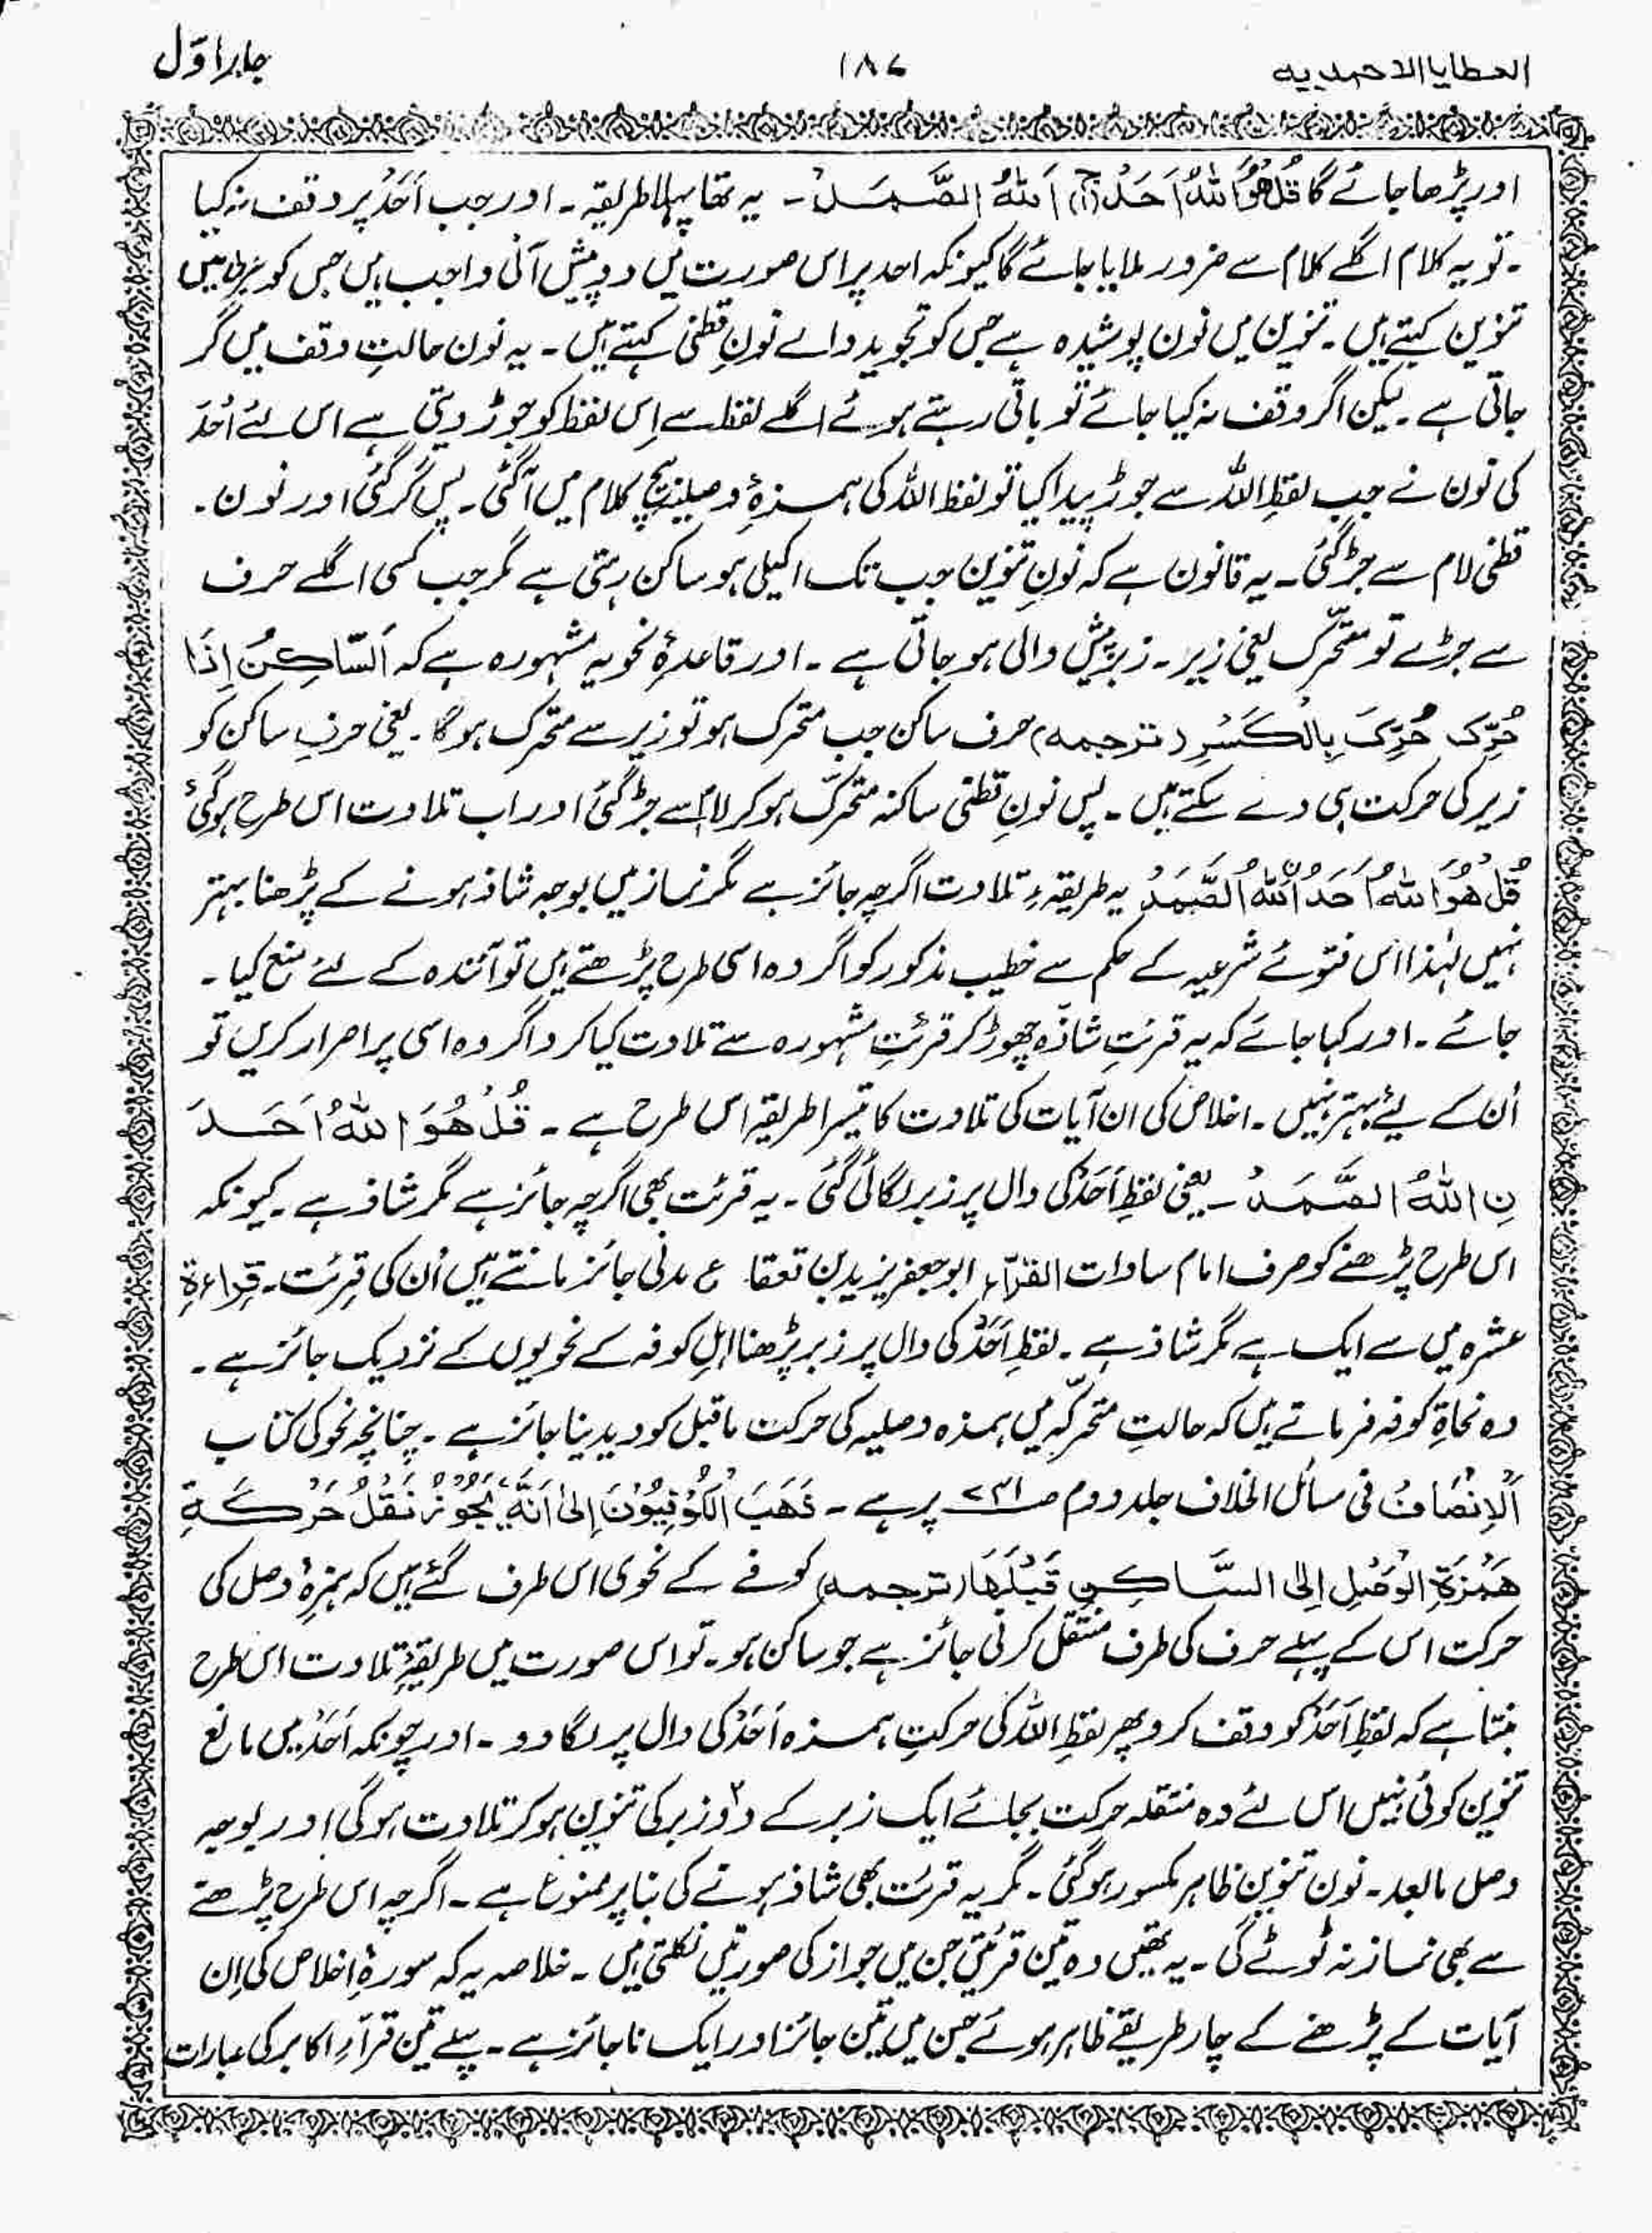 العطایا الاحمدیه ١٨٧ جلد اوّل
اور پڑھا جائے گا قُلْ هُوَ اللّٰهُ اَحَدْ (ج) اَللّٰهُ الصَّمَدْ ۔ یہ تھا پہلا طریقہ ۔ اور جب اَحَدٌ پر وقف نہ کیا
۔ تو یہ کلام اگلے کلام سے ضرور ملایا جائے گا کیونکہ احد پر اس صورت میں دو پیش آنی واجب ہیں جس کو عربی میں
تنوین کہتے ہیں ۔ تنوین میں نون پوشیدہ ہے جس کو تجوید والے نونِ قطنی کہتے ہیں ۔ یہ نون حالتِ وقف میں گر
جاتی ہے ۔ لیکن اگر وقف نہ کیا جائے تو باقی رہتے ہوئے اگلے لفظ سے اِس لفظ کو جوڑ دیتی ہے اس لئے اَحَدٌ
کی نون نے جب لفظِ اللہ سے جوڑ پیدا کیا تو لفظ اللہ کی ہمزۂِ وصلیہ بیچ کلام میں آگئی ۔ پس گر گئی اور نون ۔
قطنی لام سے جڑ گئی ۔ یہ قانون ہے کہ نونِ تنوین جب تک اکیلی ہو ساکن رہتی ہے مگر جب کسی اگلے حرف
سے جڑے تو متحرّک یعنی زیر ۔ زبر پیش والی ہو جاتی ہے ۔ اور قاعدۂ نحویہ مشہورہ ہے کہ اَلسَّاكِنُ اِذَا
حُرِّكَ حُرِّكَ بِالْكَسْرِ (ترجمه) حرف ساکن جب متحرک ہو تو زیر سے متحرک ہو گا ۔ یعنی حرفِ ساکن کو
زیر کی حرکت ہی دے سکتے ہیں ۔ پس نونِ قطنی ساکنہ متحرّک ہو کر لام سے جڑ گئی اور اب تلاوت اس طرح ہوگئی
قُلْ هُوَ اللّٰهُ اَحَدُنِ اللّٰهُ الصَّمَدُ یہ طریقہءِ تلاوت اگرچہ جائز ہے مگر نماز میں بوجہ شاذ ہونے کے پڑھنا بہتر
نہیں لہٰذا اس فتوئے شرعیہ کے حکم سے خطیب مذکور کو اگر وہ اسی طرح پڑھتے ہیں تو آئندہ کے لئے منع کیا ۔
جائے ۔ اور کہا جائے کہ یہ قرئتِ شاذّہ چھوڑ کر قرئتِ مشہورہ سے تلاوت کیا کرو اگر وہ اسی پر اصرار کریں تو
اُن کے لیۓ بہتر نہیں ۔ اخلاص کی ان آیات کی تلاوت کا تیسرا طریقہ اس طرح ہے ۔ قُلْ هُوَ اللّٰهُ اَحَدَ
نِ اللّٰهُ الصَّمَدْ ۔ یعنی لفظِ اَحَدٌ کی دال پر زبر لگائی گئی ۔ یہ قرئت بھی اگرچہ جائز ہے مگر شاذ ہے ۔ کیونکہ
اس طرح پڑھنے کو صرف امام سادات القرّاء ابوجعفر یزید بن تعقا ع مدنی جائز مانتے ہیں اُن کی قرئت ۔ قراءۃِ
عشرہ میں سے ایک ہے مگر شاذ ہے ۔ لفظِ اَحَدٌ کی دال پر زبر پڑھنا اہلِ کوفہ کے نحویوں کے نزدیک جائز ہے ۔
وہ نحاۃِ کوفہ فرماتے ہیں کہ حالتِ متحرّکہ میں ہمزہ وصلیہ کی حرکت ماقبل کو دیدینا جائز ہے ۔ چنانچہ نحو کی کتاب
اَلْاِنْصَافُ فی مسائل الخلاف جلد دوم صـ٧٣١ پر ہے ۔ ذَهَبَ الْكُوْفِيُّوْنَ اِلىٰ اَنَّهٗ يَجُوْزُ نَقْلُ حَرْكَةِ
هَمْزَةِ الْوَصْلِ اِلىٰ السَّاكِنِ قَبْلَهَا (ترجمه) کوفے کے نحوی اس طرف گئے ہیں کہ ہمزۂ وصل کی
حرکت اس کے پہلے حرف کی طرف منتقل کرنی جائز ہے جو ساکن ہو ۔ تو اس صورت میں طریقۂِ تلاوت اس طرح
بنتا ہے کہ لفظِ اَحَدْ کو وقف کرو پھر لفظِ اللہ کی حرکتِ ہمزہ اَحَدْ کی دال پر لگا دو ۔ اور چونکہ اَحَدٌ میں مانع
تنوین کوئی نہیں اس لئے وہ منتقلہ حرکت بجائے ایک زبر کے دو زبر کی تنوین ہو کر تلاوت ہو گی اور بوجہ
وصل مابعد ۔ نون تنوین ظاہر مکسور ہوگئی ۔ مگر یہ قرئت بھی شاذ ہونے کی بنا پر ممنوع ہے ۔ اگرچہ اس طرح پڑھنے
سے بھی نماز نہ ٹوٹے گی ۔ یہ تھیں وہ تین قرئتیں جن میں جواز کی صورتیں نکلتی ہیں ۔ خلاصہ یہ کہ سورۂِ اخلاص کی اِن
آیات کے پڑھنے کے چار طریقے ظاہر ہوئے جن میں تین جائز اور ایک ناجائز ہے ۔ پہلے تین قرآءِ اکابر کی عبارات